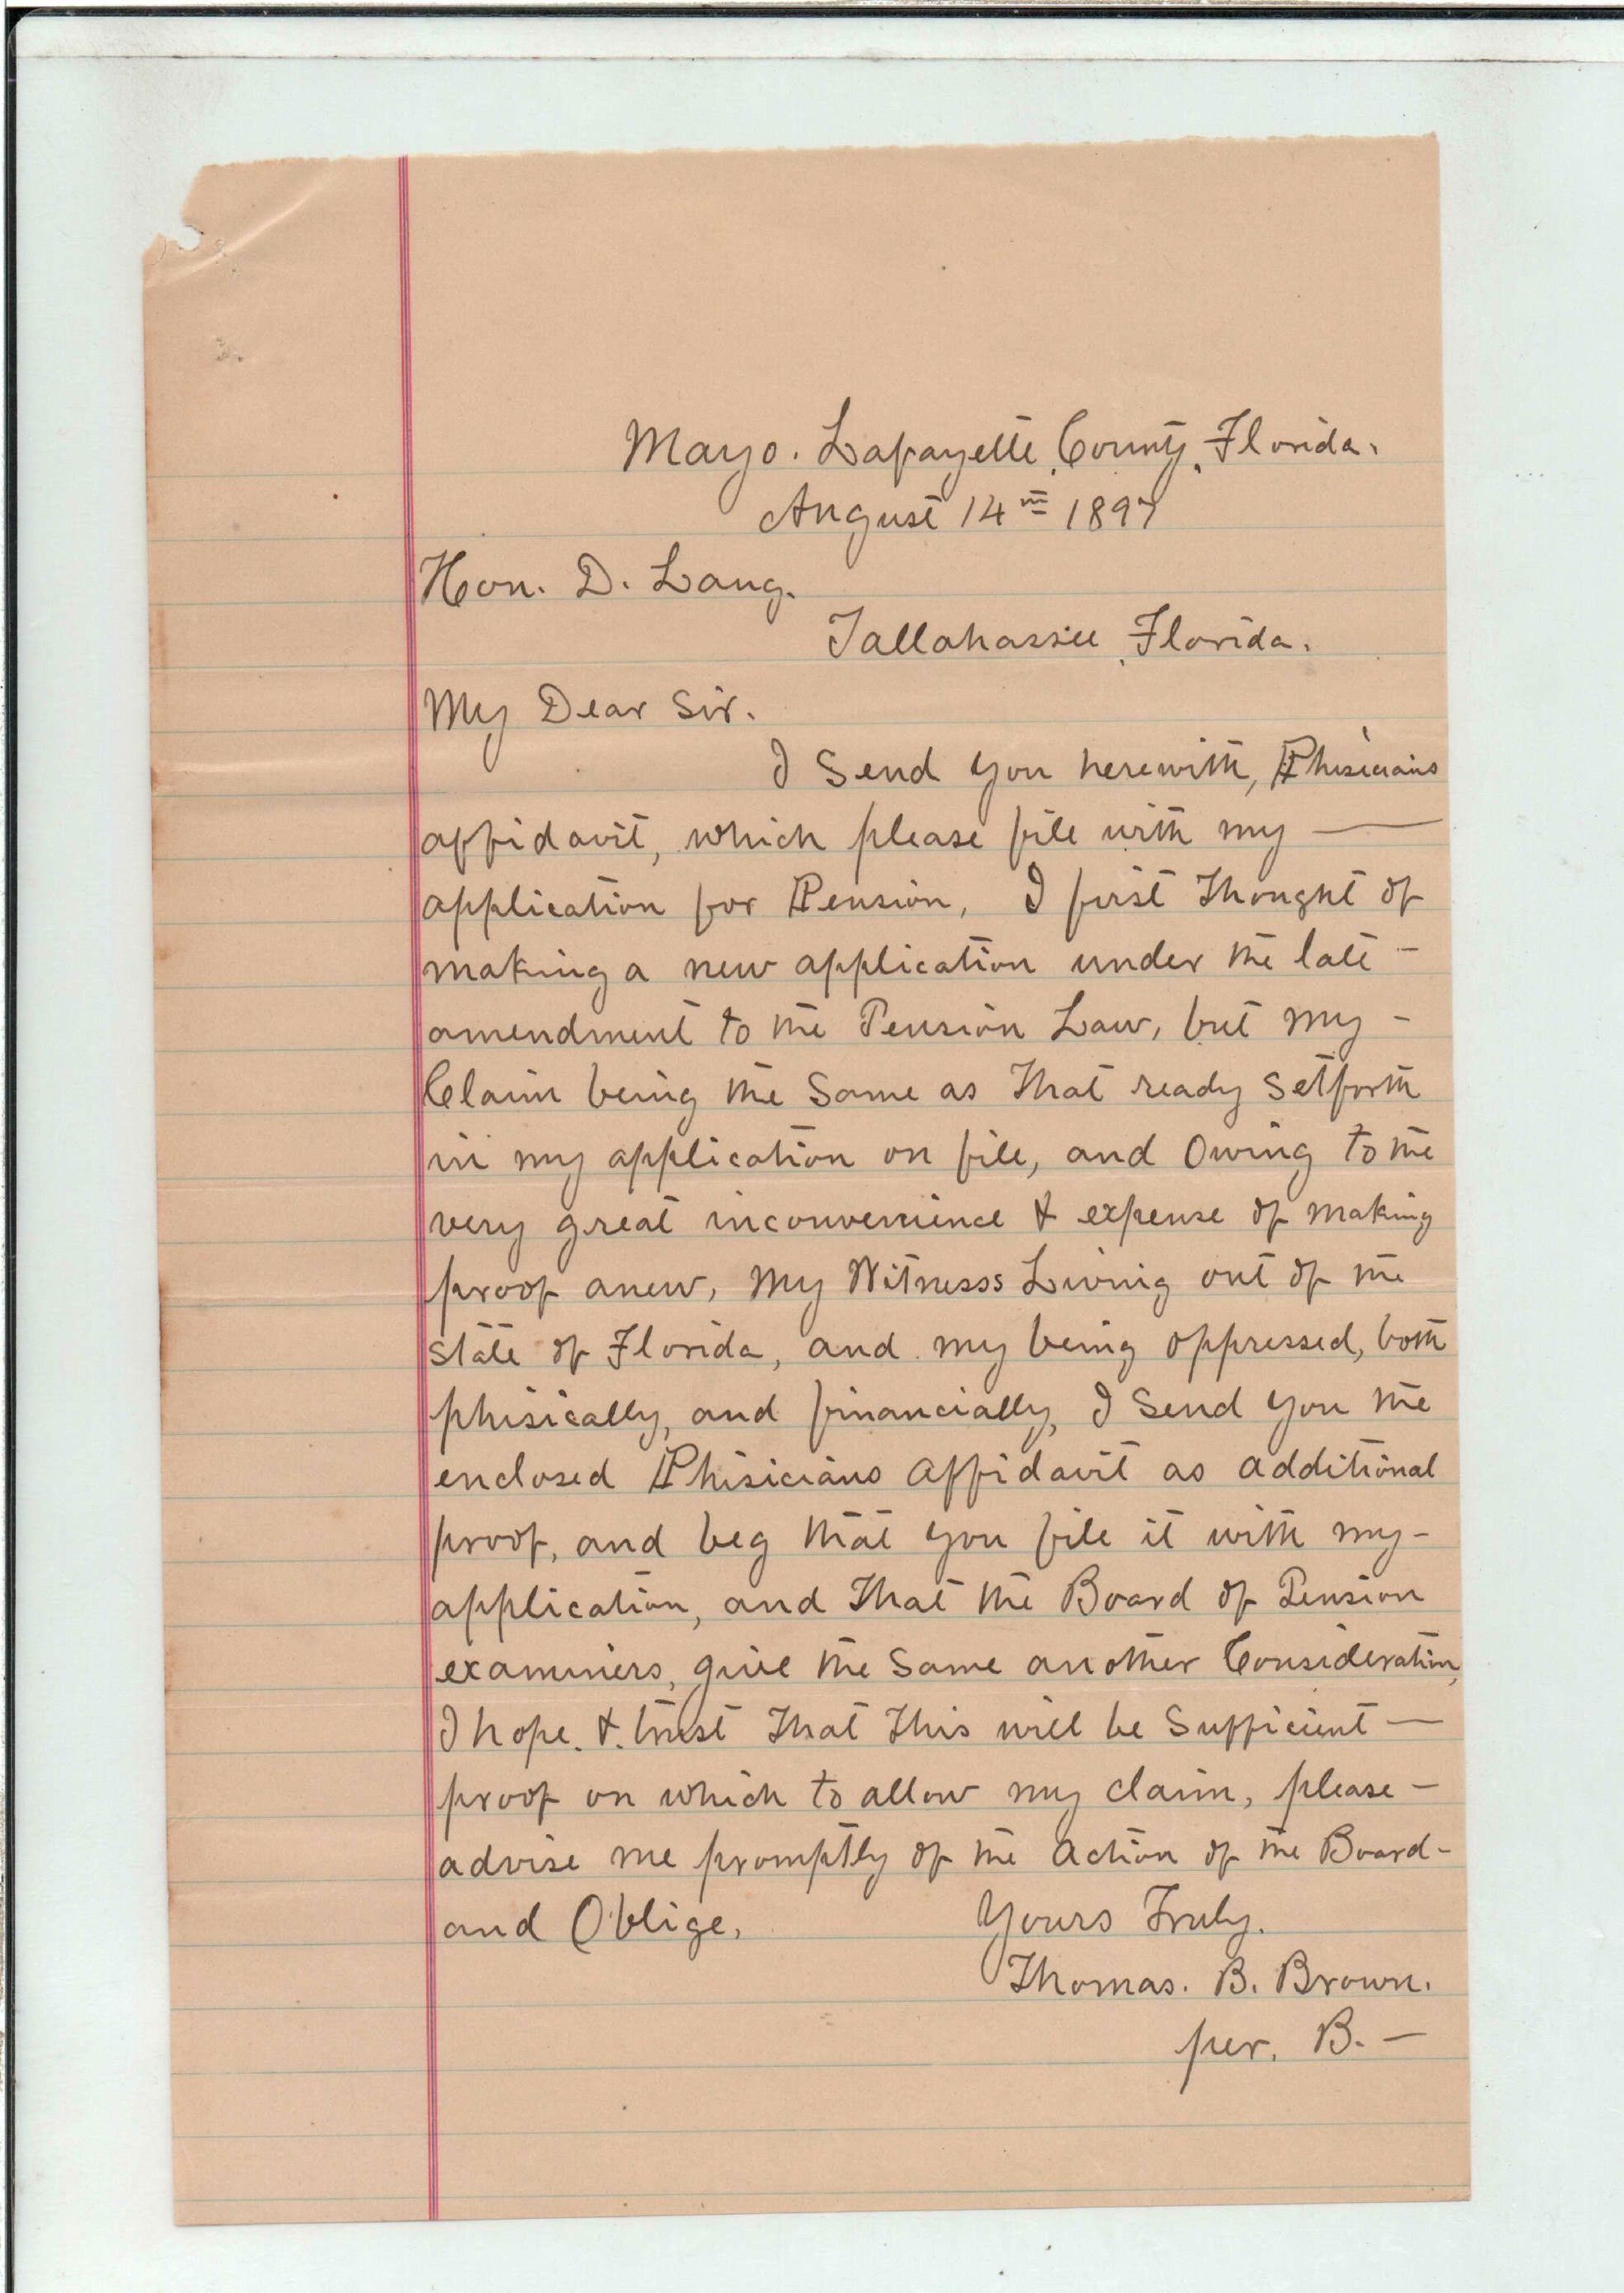 Mayo. Lafayette, County, Florida.
August 14th 1897
Hon. D. Lang.
Tallahassee, Florida.
My Dear Sir.
I Send you herewith, Phisicians
affidavit, which please file with my —
application for Pension, I first Thought of
making a new application under the late –
amendment to the Pension Law, but my –
Claim being the Same as That ready Setforth
in my application on file, and Owing to the
very great inconvenience & expense of making
proof anew, my Witnesss Living out of the
State of Florida, and my being oppressed, both
phisically, and financially, I Send you the
enclosed Phisicians affidavit as additional
proof, and beg that you file it with my –
application, and That the Board of Pension
examiners, give the Same another Consideration,
I hope. &. trust That This will be Sufficient —
proof on which to allow my claim, please –
advise me promptly of the Action of the Board –
and Oblige,
Yours Truly.
Thomas. B. Brown.
per. B. —